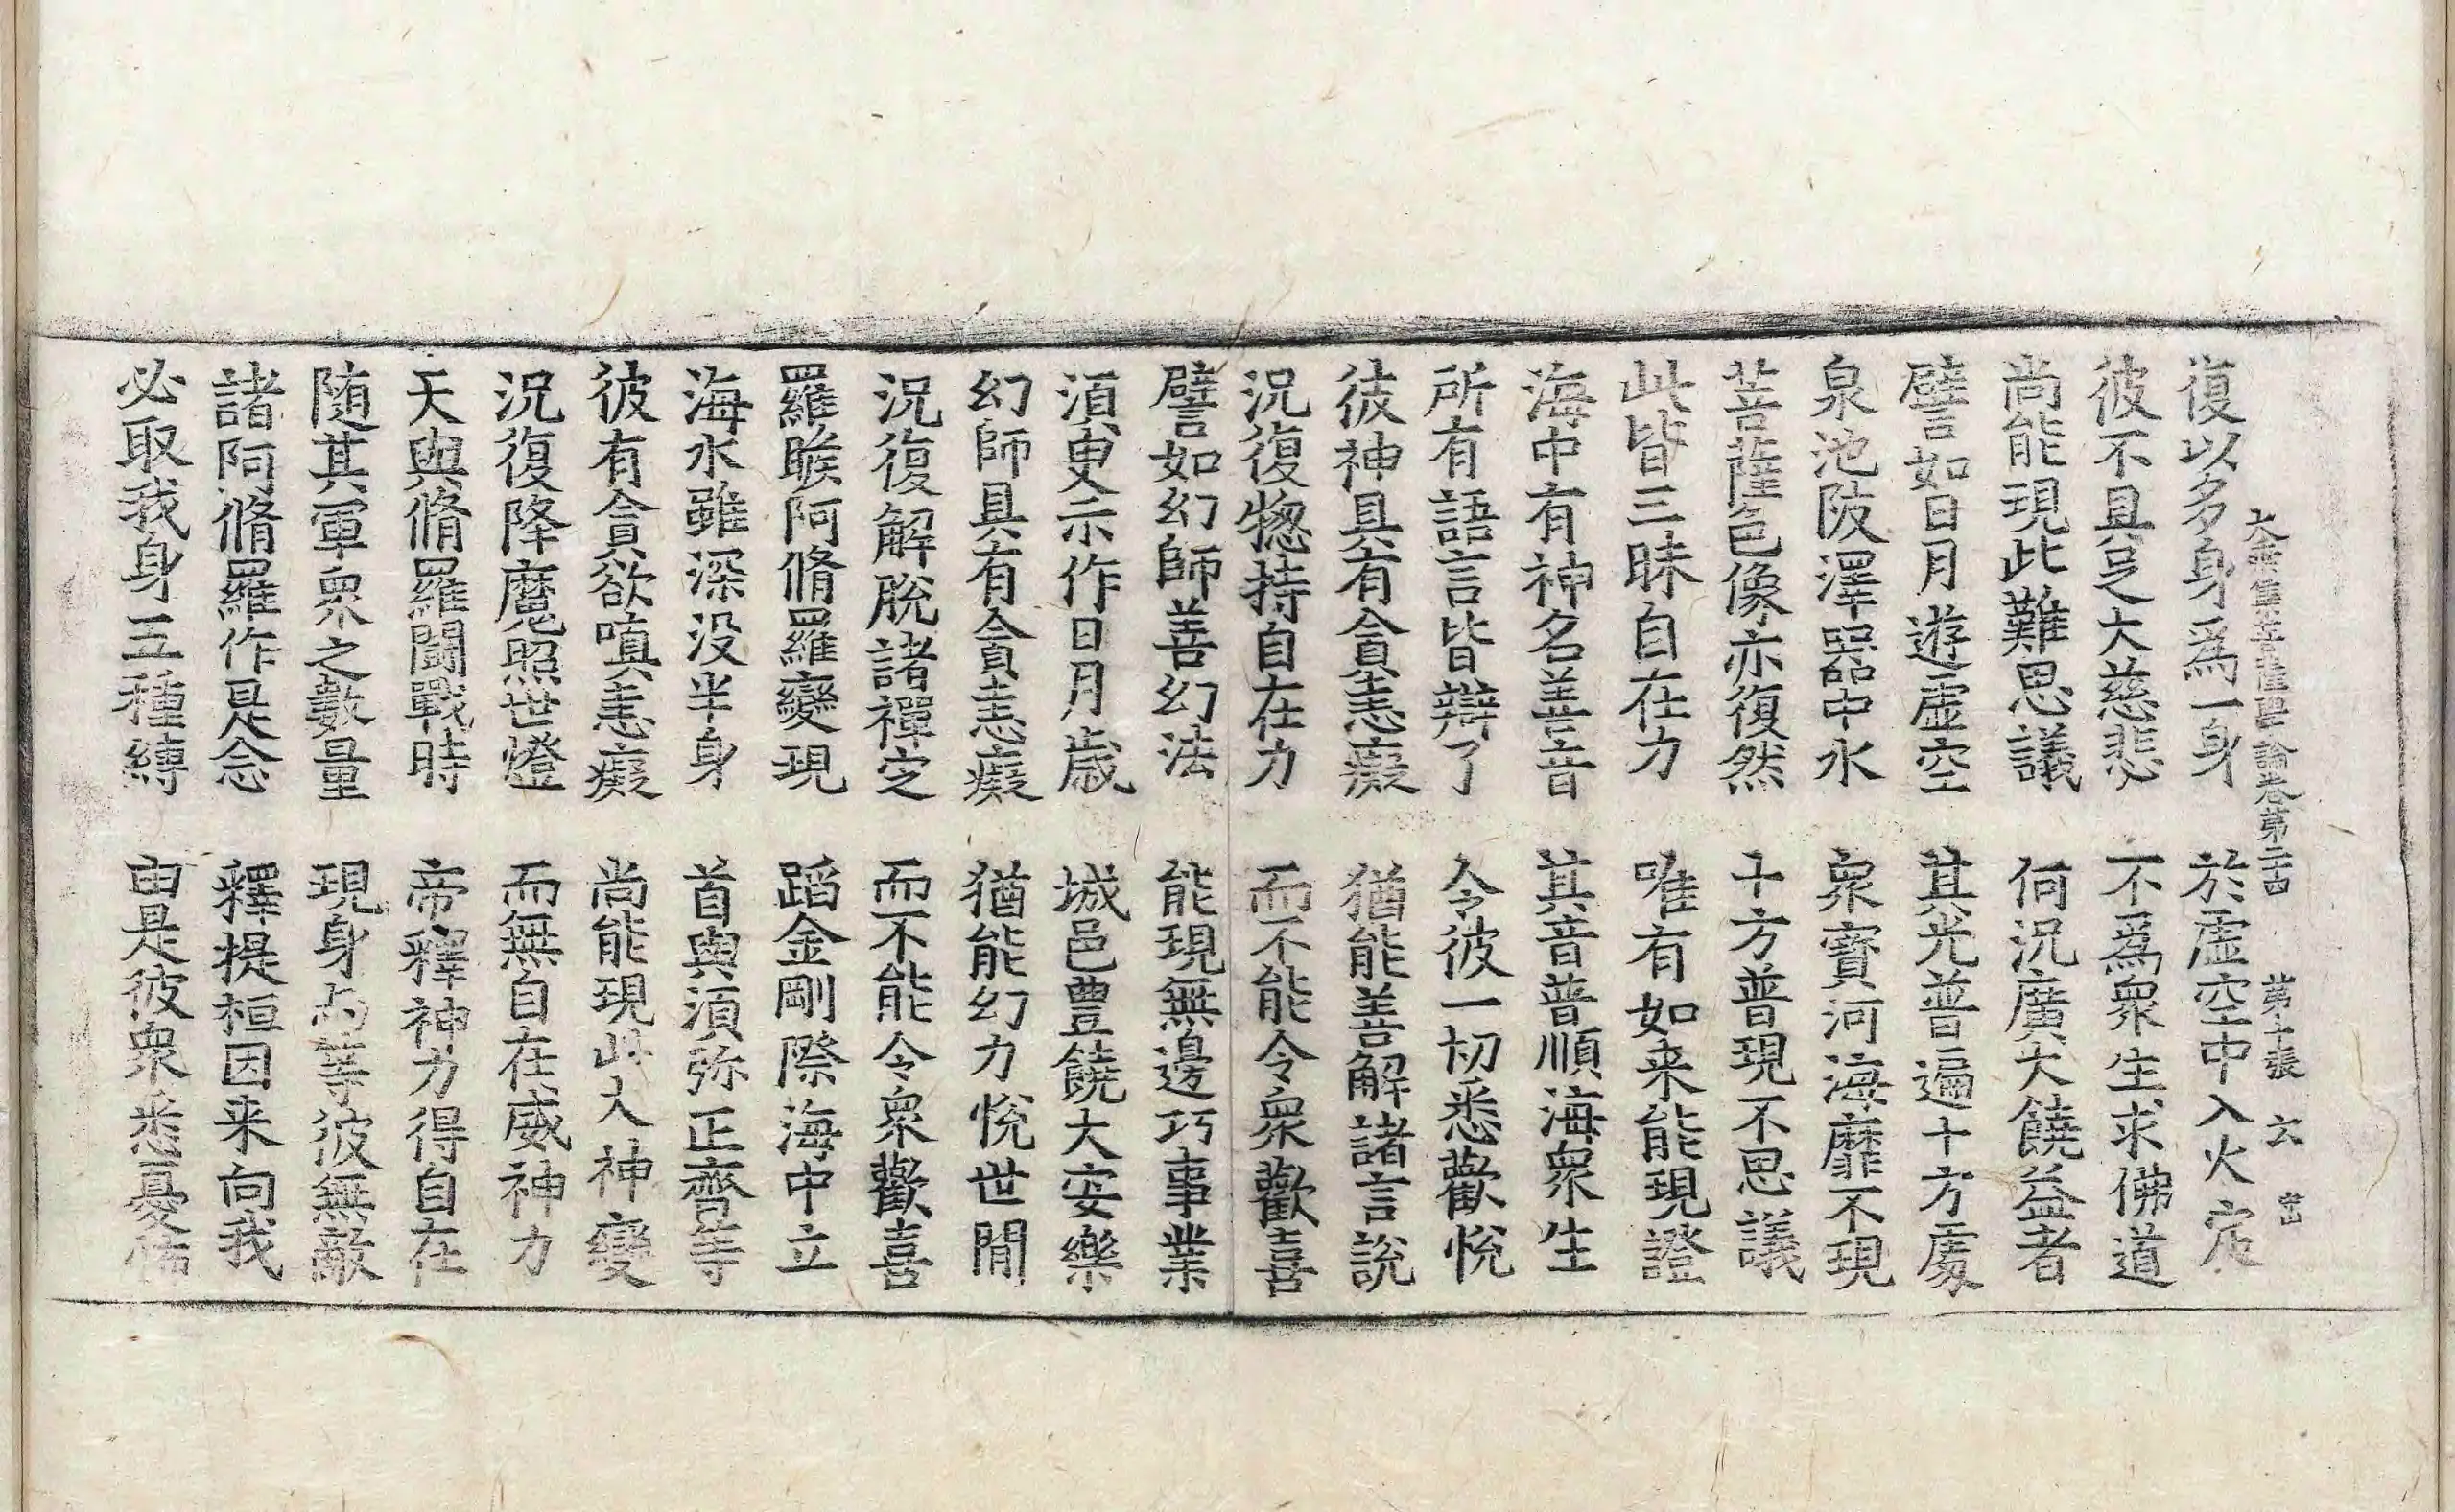 復以多身爲一身 於虛空中入火定
大乘集菩薩學論卷第二十四 第十張 六
彼不具足大慈悲 不爲衆生求佛道
尚能現此難思議 何況廣大饒益者
譬如日月遊虛空 其光普遍十方處
泉池陂澤器中水 衆寶河海靡不現
菩薩色像亦復然 十方普現不思議
此皆三昧自在力 唯有如来能現證
海中有神名善音 其音普順海衆生
所有語言皆辯了 令彼一切悉歡悅
彼神具有貪恚癡 猶能善解諸言說
況復揔持自在力 而不能令衆歡喜
譬如幻師善幻法 能現無邊巧事業
湏臾示作日月歲 城邑豊饒大安樂
幻師具有貪恚癡 猶能幻力悅世閒
況復解脫諸禪定 而不能令衆歡喜
羅睺阿脩羅變現 蹈金剛際海中立
海水雖深没半身 首與湏弥正齊等
彼有貪欲嗔恚癡 尚能現此大神變
況復降魔照世燈 而無自在威神力
天與脩羅闘戰時 帝釋神力得自在
随其軍衆之數量 現身与等彼無敵
諸阿脩羅作是念 釋提桓因来向我
必取我身五種縛 由是彼衆悉憂悴